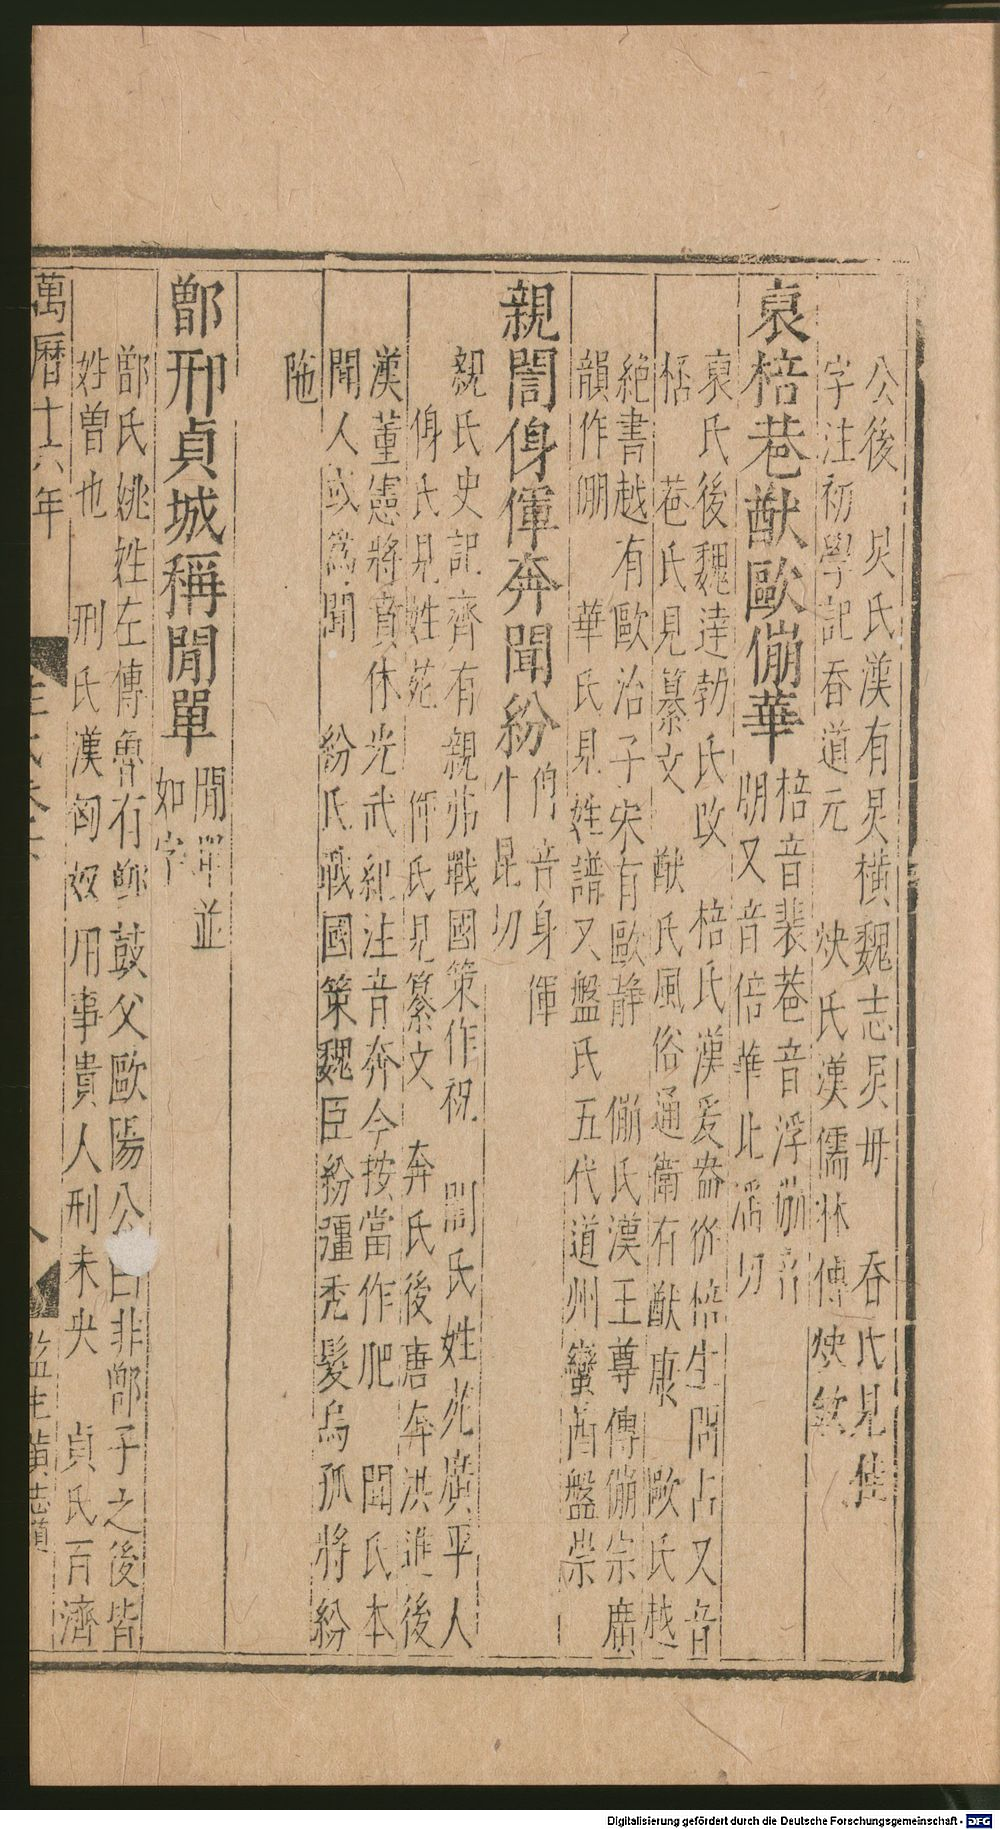 公後　炅氏漢有炅橫魏志炅毋　吞氏見姓
字注初學記吞道元　炔氏漢儒林傳炔欽
裒棓巷猷歐傰華
棓音裴巷音浮傰音
朋又音倍華比活切
裒氏後魏達勃氏改　棓氏漢爰盎從棓生問占又音
栝　巷氏見纂文　猷氏風俗通衛有猷康　歐氏越
絶書越有歐冶子宋有歐靜　傰氏漢王尊傳傰宗廣
韻作倗　華氏見姓譜又盤氏五代道州蠻酋盤崇
親誾㑗渾奔聞紛
㑗音身渾
牛昆切
親氏史記齊有親弗戰國策作祝　誾氏姓苑廣平人
㑗氏見姓苑　渾氏見纂文　奔氏後唐奔洪進後
漢董憲將賁休光武紀注音奔今按當作肥　聞氏本
聞人或爲聞　紛氏戰國策魏臣紛彊禿髮烏孤將紛
陁
鄫刑貞城稱閒單
閒單並
如字
鄫氏姚姓左傳魯有鄫鼓父歐陽公曰非鄫子之後皆
姓曾也　刑氏漢匈奴用事貴人刑未央　貞氏百濟
萬曆十六年
監生黃志道
Digitalisierung gefördert durch die Deutsche Forschungsgemeinschaft - DFG